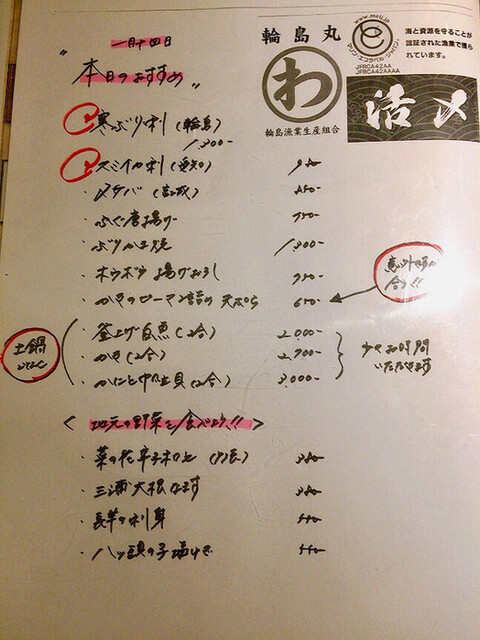 一月十四日
"本日のおすすめ"
輪島丸
わ
輪島漁業生産組合
www.melj.jp
マリン・エコラベル・ジャパン
JFRCA42AA
JFRCA42AAAA
海と資源を守ることが
認証された漁業で獲ら
れています。
活〆
寒ぶり刺(輪島) 1,300-
スミイカ刺(愛知)
・〆サバ(宮城) 850-
・ふぐ唐揚げ
・ぶりかま焼 1,300-
・ホウボウ揚げおろし
・かきのローマン詰め天ぷら 650-
合う!!
土鍋
ごはん
・釜上げ白魚(2合) 2,000-
・かき(2合)
・かにと中吐貝(2合) 3,000-
少々お時間
いただきます
<地元の野菜を食べよう!!>
・菜の花辛子和え 380-
・三浦大根なます 380-
・長芋の刺身
・八ッ頭の子揚げ